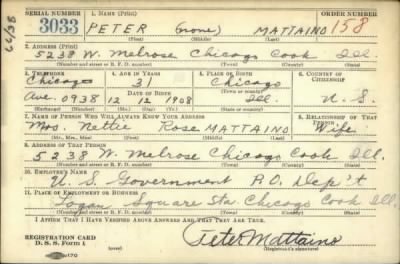 SERIAL NUMBER 1. NAME (Print) ORDER NUMBER
3033 PETER (none) MATTAINO 158
(First) (Middle) (Last)
2. ADDRESS (Print)
5238 W. Melrose Chicago Cook Ill.
(Number and street or R. F. D. number) (Town) (County) (State)
3. TELEPHONE 4. AGE IN YEARS 5. PLACE OF BIRTH 6. COUNTRY OF CITIZENSHIP
Chicago 31 Chicago
DATE OF BIRTH (Town or county)
Ave. 0938 12 12 1908 Ill. U. S.
(Exchange) (Number) (Mo.) (Day) (Yr.) (State or country)
7. NAME OF PERSON WHO WILL ALWAYS KNOW YOUR ADDRESS 8. RELATIONSHIP OF THAT PERSON
Mrs. Nettie Rose MATTAINO Wife
(Mr., Mrs., Miss) (First) (Middle) (Last)
9. ADDRESS OF THAT PERSON
5238 W. Melrose Chicago Cook Ill.
(Number and street or R. F. D. number) (Town) (County) (State)
10. EMPLOYER'S NAME
U. S. Government P.O. Dep't
11. PLACE OF EMPLOYMENT OR BUSINESS
Logan Square Sta. Chicago Cook Ill.
(Number and street or R. F. D. number) (Town) (County) (State)
I AFFIRM THAT I HAVE VERIFIED ABOVE ANSWERS AND THAT THEY ARE TRUE.
REGISTRATION CARD
D. S. S. Form 1 Peter Mattaino
(Registrant's signature)